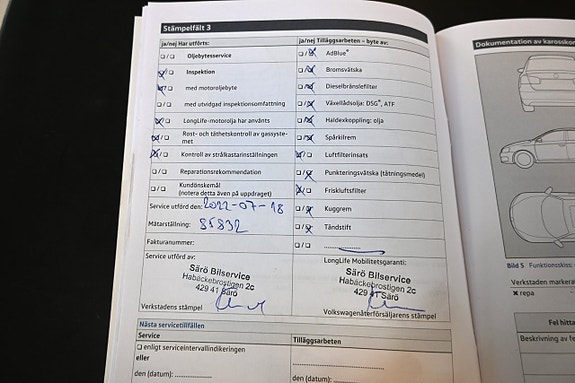 Stämpelfält 3
ja/nej Har utförts:
☐/☐ Oljebytesservice
☒/☐ Inspektion
☒/☐ med motoroljebyte
☐/☐ med utvidgad inspektionsomfattning
☒/☐ LongLife-motorolja har använts
☒/☐ Rost- och täthetskontroll av gassyste-
met
☒/☐ Kontroll av strålkastarinställningen
☐/☐ Reparationsrekommendation
☐/☐ Kundönskemål
(notera detta även på uppdraget)
Service utförd den: 2022-07-18
Mätarställning: 85832
Fakturanummer:
Service utförd av:
Särö Bilservice
Habäckebrostigen 2c
429 41 Särö
Verkstadens stämpel
ja/nej Tilläggsarbeten – byte av:
☐/☒ AdBlue®
☐/☒ Bromsvätska
☐/☒ Dieselbränslefilter
☐/☒ Växellådsolja: DSG®, ATF
☐/☒ Haldexkoppling: olja
☐/☒ Spårkilrem
☒/☐ Luftfilterinsats
☐/☒ Punkteringsvätska (tätningsmedel)
☒/☐ Friskluftsfilter
☐/☒ Kuggrem
☐/☒ Tändstift
☐/☐ ....................
LongLife Mobilitetsgaranti:
Särö Bilservice
Habäckebrostigen 2c
429 41 Särö
Volkswagenåterförsäljarens stämpel
Nästa servicetillfällen
Service
☐ enligt serviceintervallindikeringen
eller
den (datum): ....................
Tilläggsarbeten
den (datum): ....................
Dokumentation av karosskon
Bild 5 Funktionsskiss:
Verkstaden markerar
✖ repa
Fel hitta
Beskrivning av fe